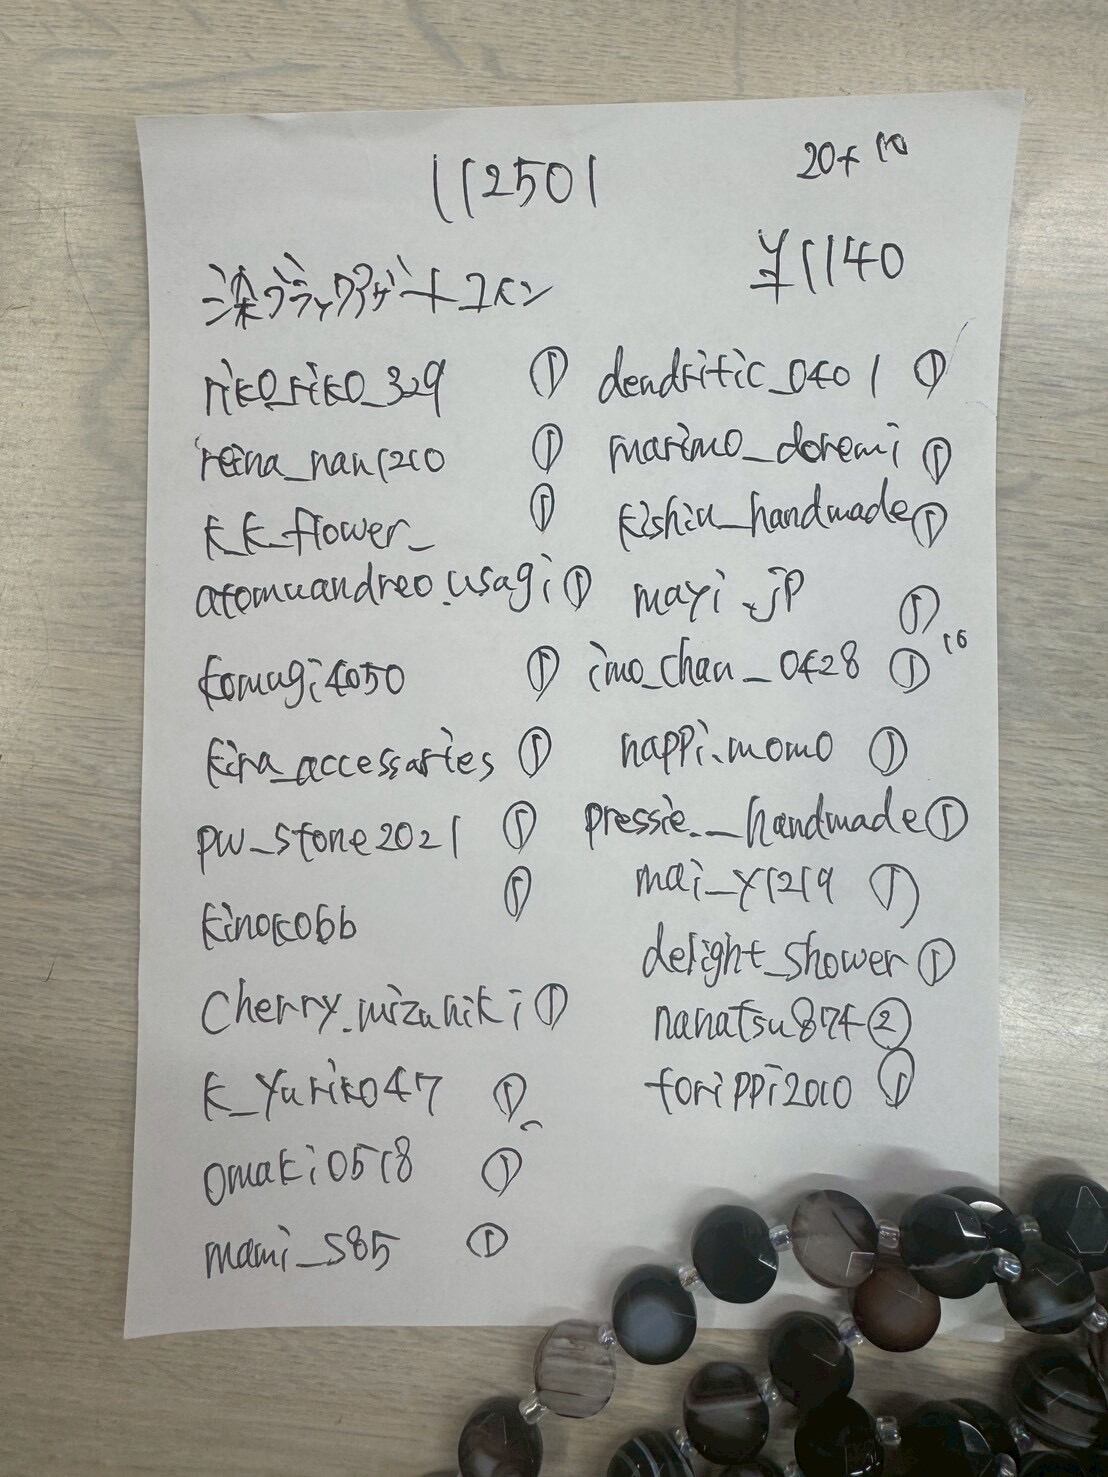 112501
20+10
染ブラックアゲートコイン
¥1140
riko_riko_329 ①
reina_nan1210 ①
k_k_flower_ ①
atomuandreo.usagi ①
komugi4050 ①
kira_accessaries ①
pw_stone2021 ①
kinoko66 ①
cherry.mizuhiki ①
k_yuriko47 ①
omaki0518 ①
mami_s85 ①
dendritic_0401 ①
marimo_doremi ①
kishiu_handmade ①
mayi.jp ①
imo_chan_0428 ① 10
nappi.momo ①
pressie._handmade ①
mai_y1219 ①
delight_shower ①
nanatsu874 ②
torippi2010 ①